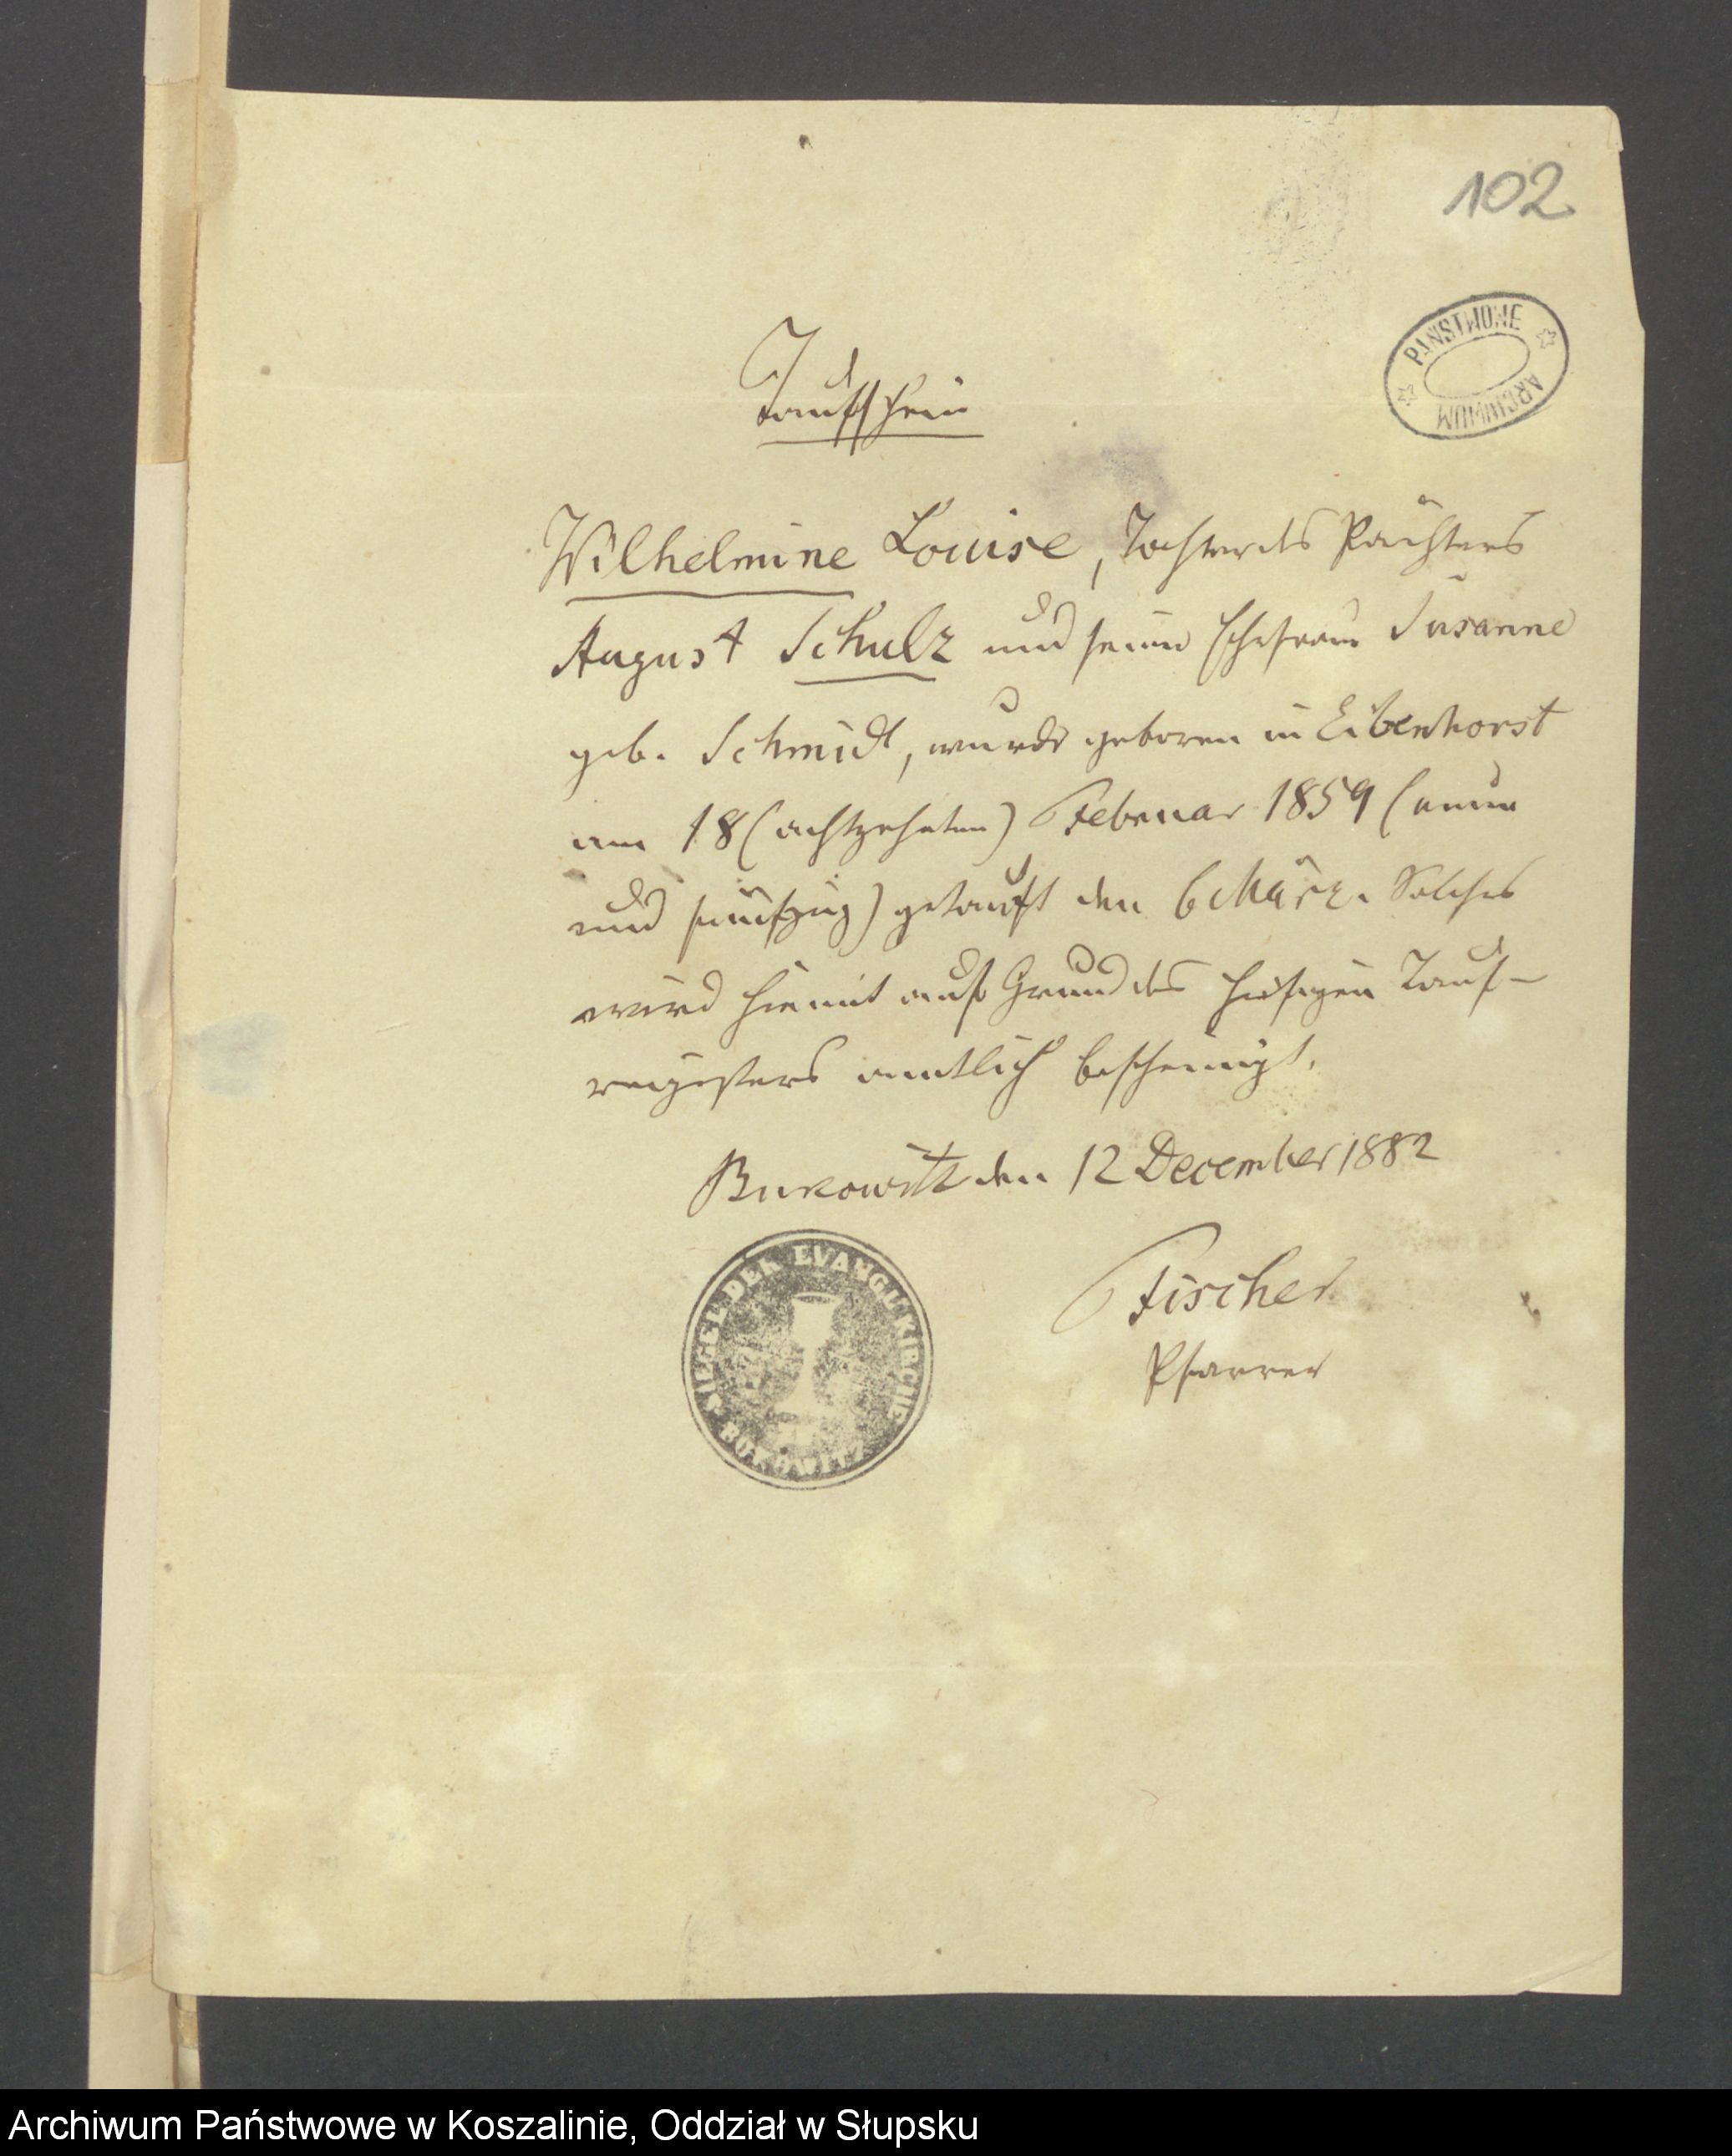 102
PAŃSTWOWE ARCHIWUM
Taufschein
Wilhelmine Louise, Tochter des Pächters
August Schulz und seiner Ehefrau Susanne
geb. Schmidt, wurde geboren in Eibenhorst
am 18 (achtzehnten) Februar 1859 (neun
und fünfzig) getauft den 6 März. Solches
wird hiemit auf Grund des hiesigen Tauf-
registers amtlich bescheinigt.
Bukowitz den 12 December 1882
Fischer
Pfarrer
SIEGEL DER EVANGL. KIRCHE
BUKOWITZ
Archiwum Państwowe w Koszalinie, Oddział w Słupsku